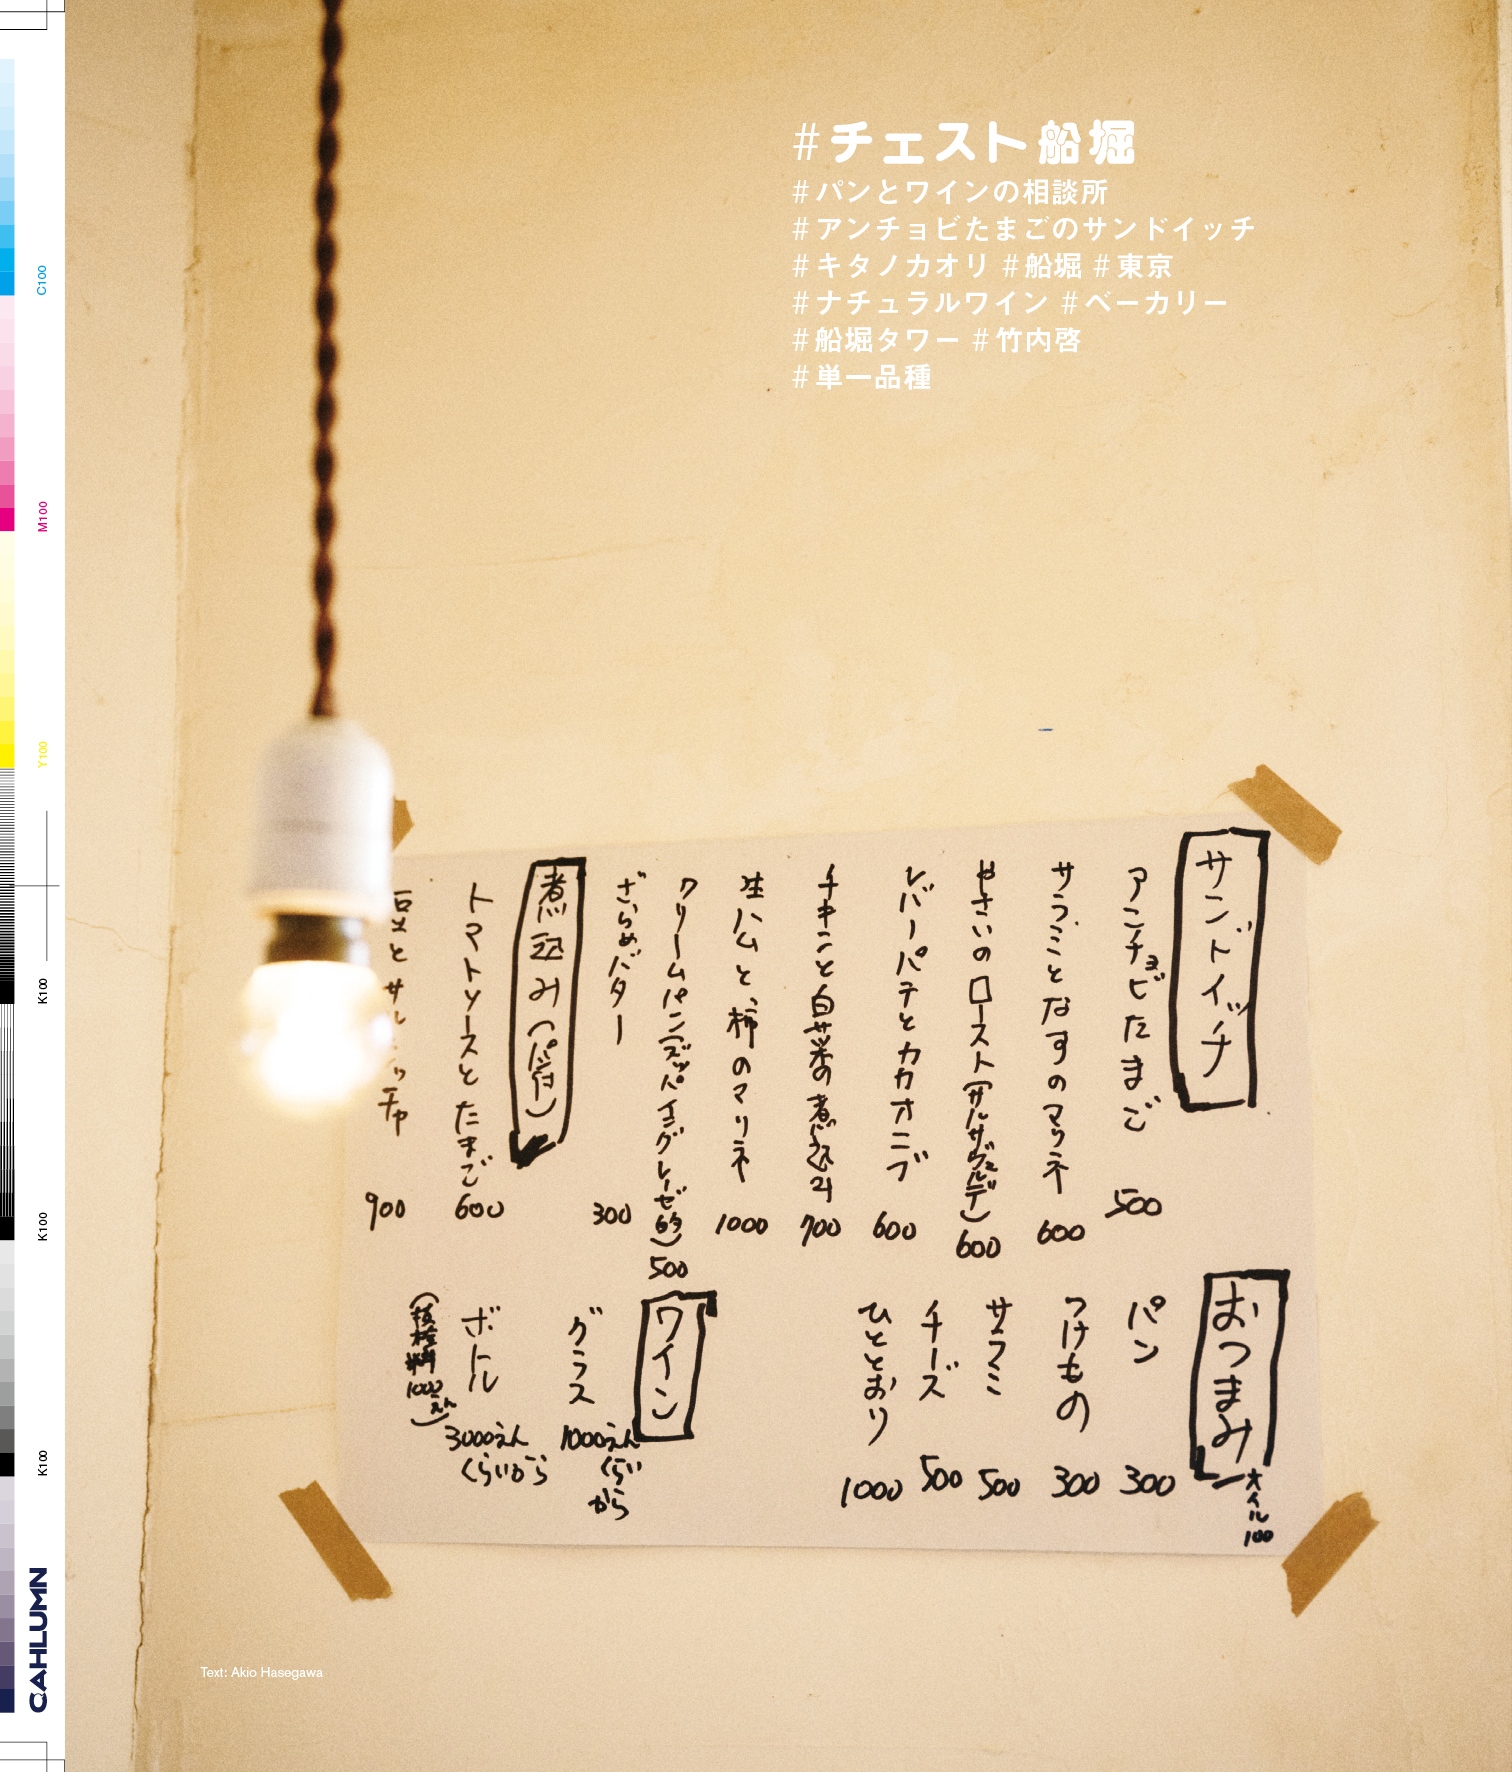 #チェスト船堀
#パンとワインの相談所
#アンチョビたまごのサンドイッチ
#キタノカオリ #船堀 #東京
#ナチュラルワイン #ベーカリー
#船堀タワー #竹内啓
#単一品種
サンドイッチ
アンチョビたまご 500
サラミとなすのマリネ 600
やさいのロースト(サルサヴェルデ) 600
レバーパテとカカオニブ 600
チキンと白菜の煮込み 700
生ハムと、柿のマリネ 1000
クリームパン(ズッパイングレーゼ的) 500
ざらめバター 300
煮込み(パン付)
トマトソースとたまご 600
900
おつまみ
オイル 100
パン 300
つけもの 300
サラミ 500
チーズ 500
ひととおり 1000
ワイン
グラス 1000えんくらいから
ボトル 3000えんくらいから
(抜栓料1000えん)
Text: Akio Hasegawa
C100
M100
Y100
K100
K100
K100
CAHLUMN